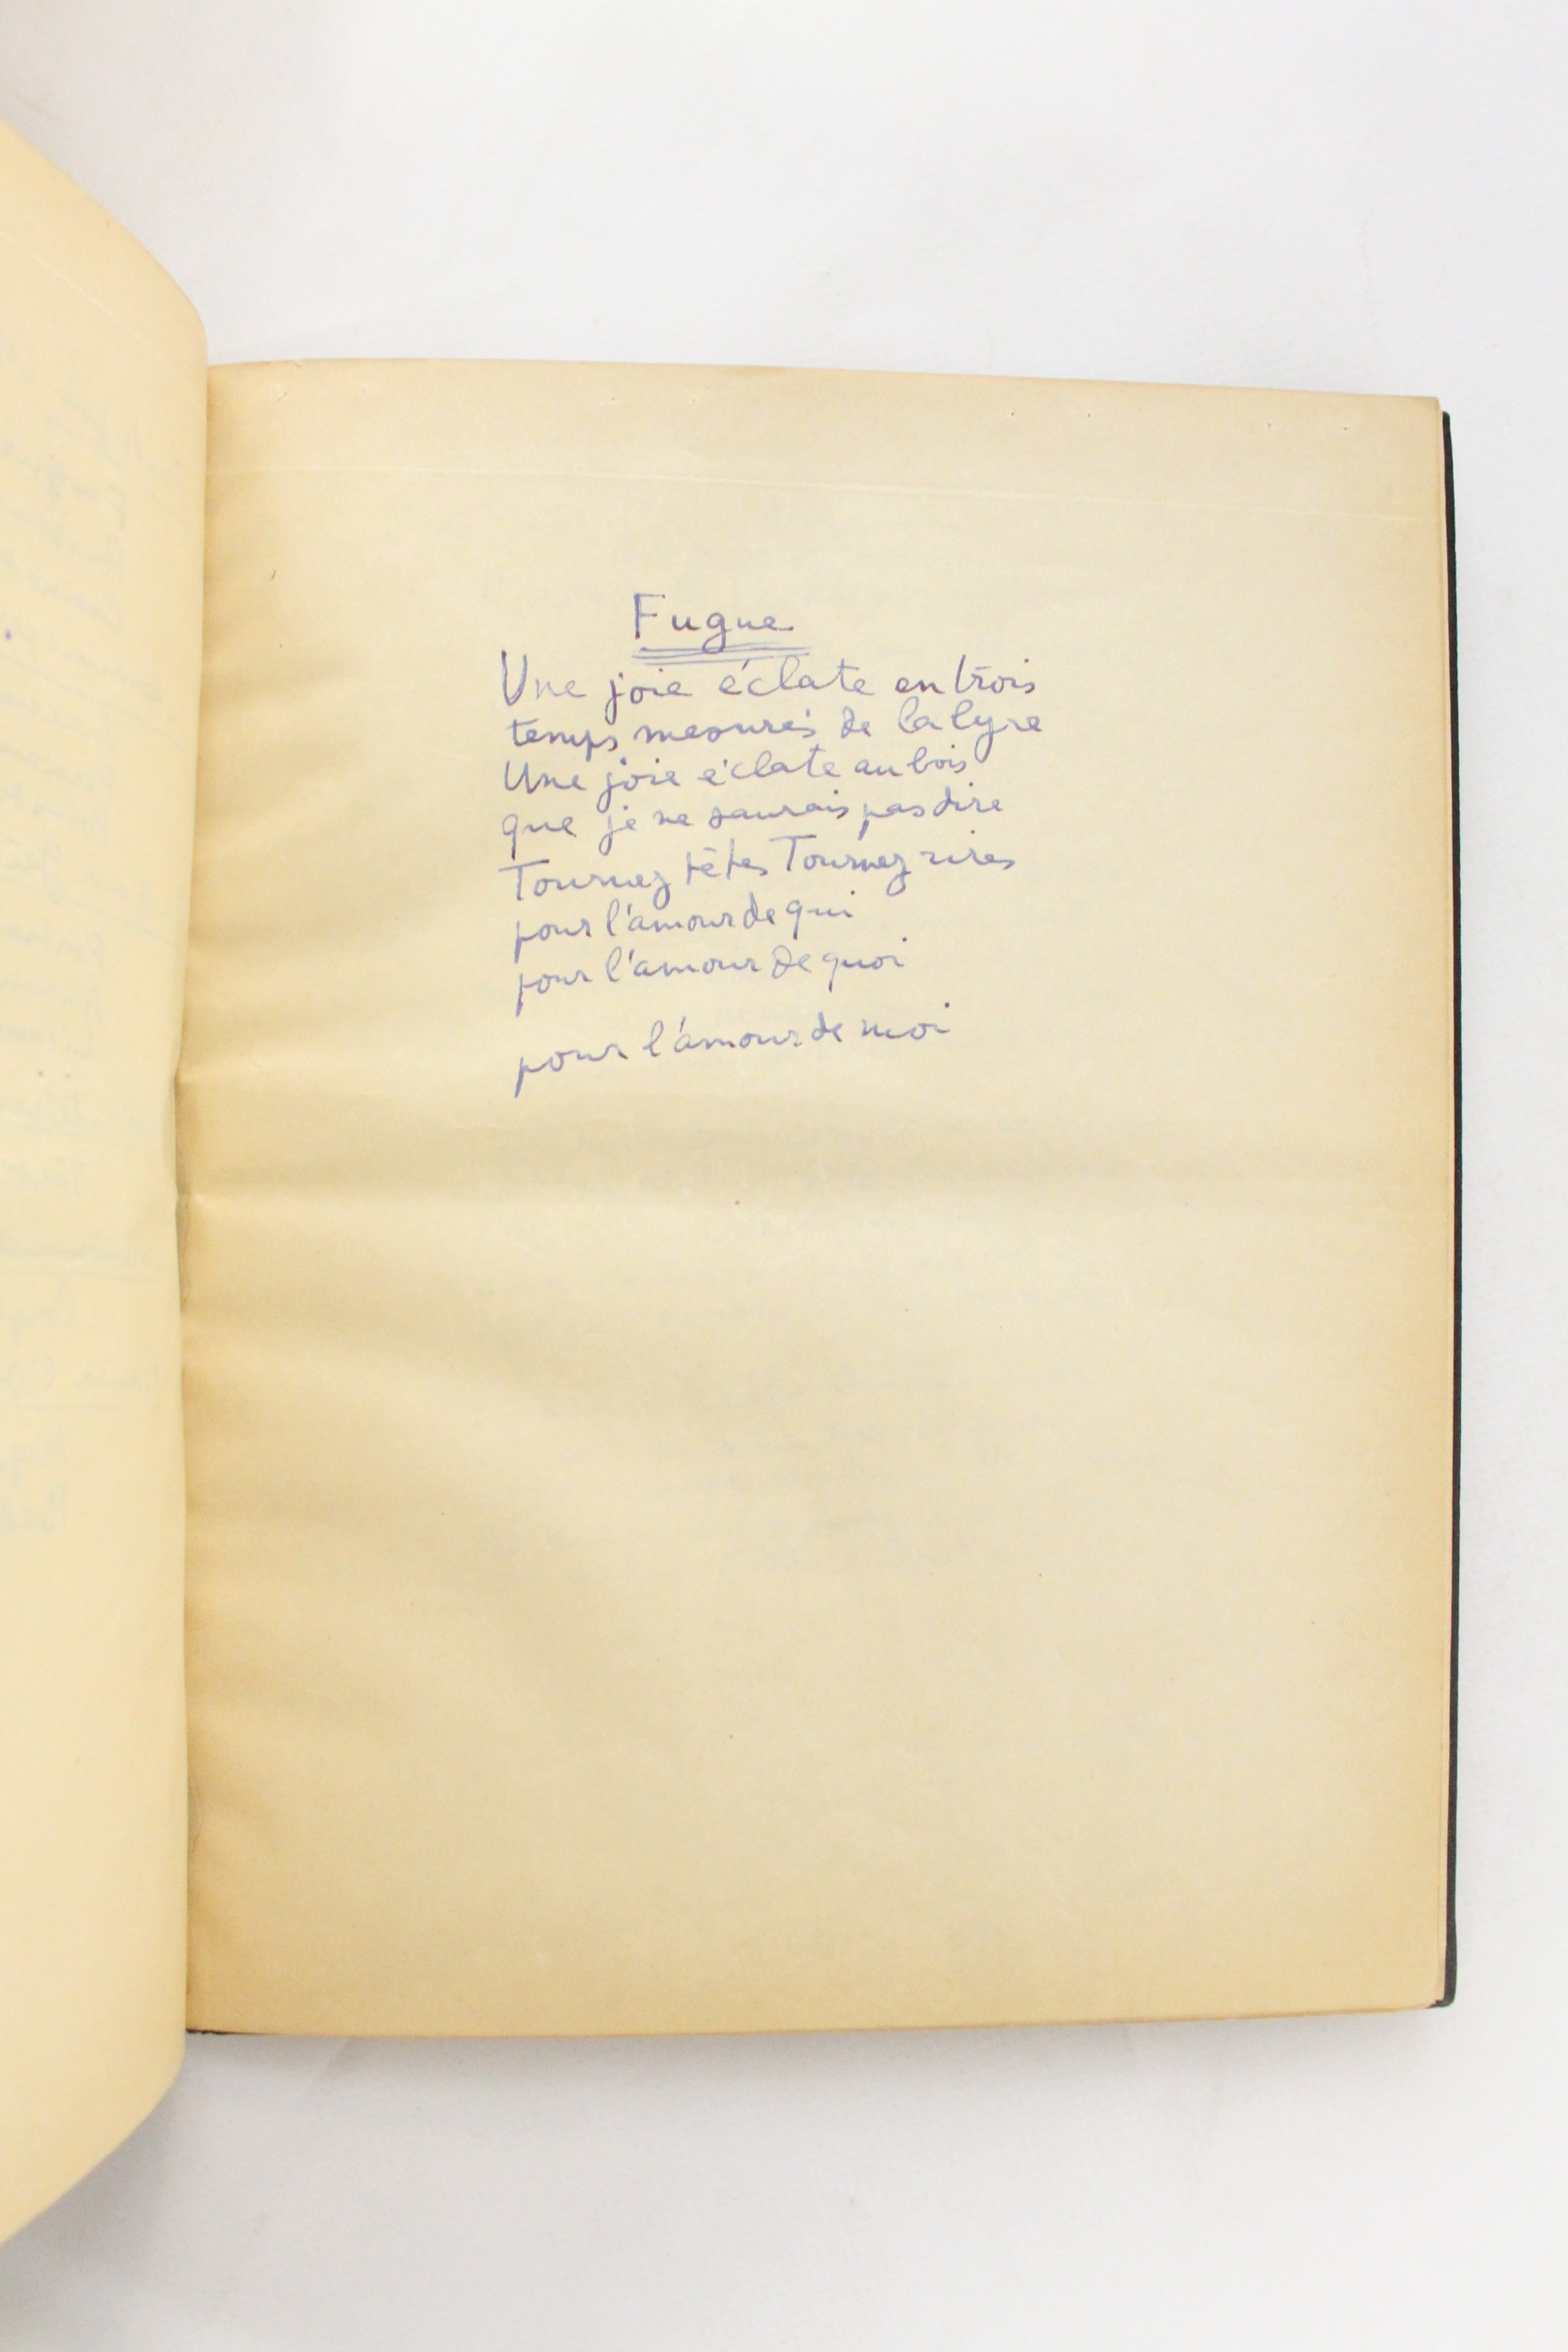 Fugue
Une joie éclate en trois
temps mesurés de la lyre
Une joie éclate au bois
que je ne saurais pas dire
Tournez têtes Tournez rires
pour l'amour de qui
pour l'amour de quoi
pour l'amour de moi